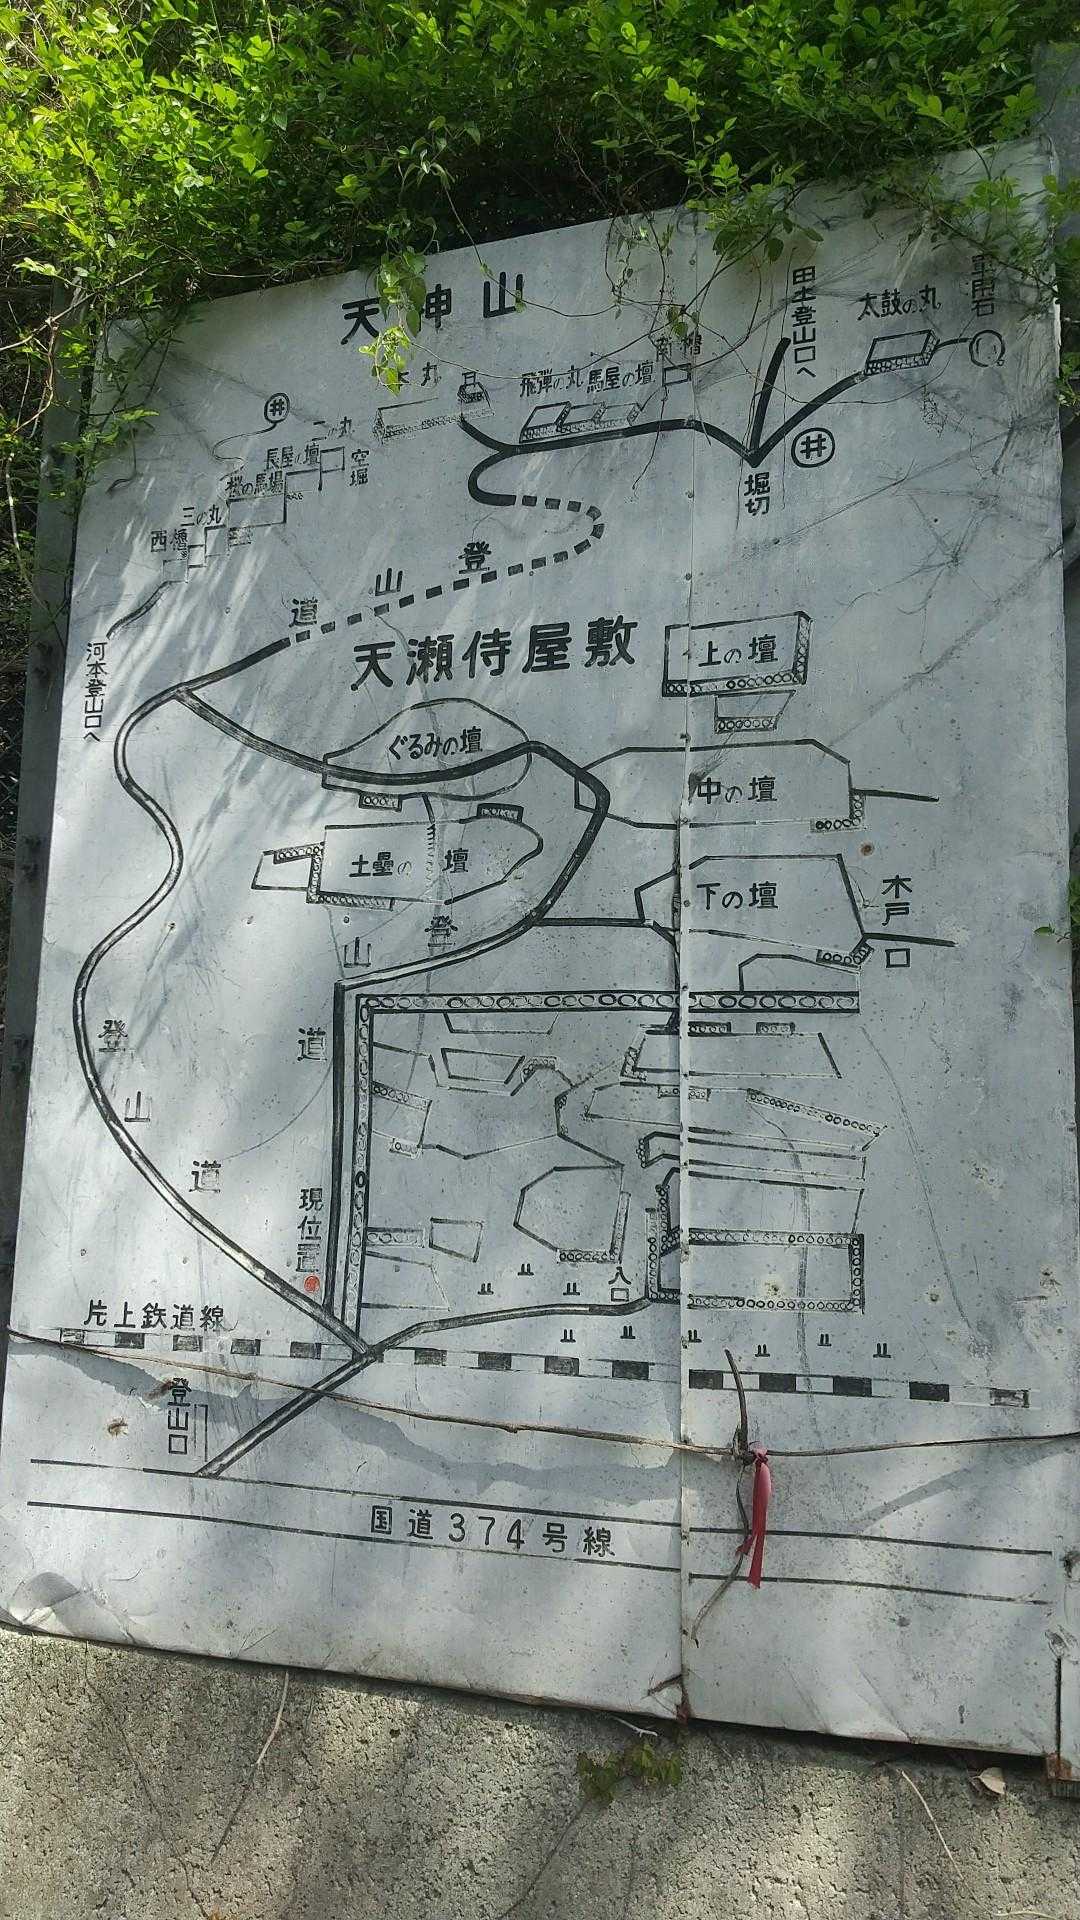 天神山
田土登山口へ
太鼓の丸
軍用石
本丸
飛弾の丸
馬屋の壇
南櫓
井
二の丸
長屋の壇
空堀
桜の馬場
三の丸
西櫓
井
堀切
登山道
河本登山口へ
天瀬侍屋敷
上の壇
ぐるみの壇
中の壇
土塁の壇
下の壇
木戸口
登山道
登山道
現位置
入口
片上鉄道線
登山口
国道374号線